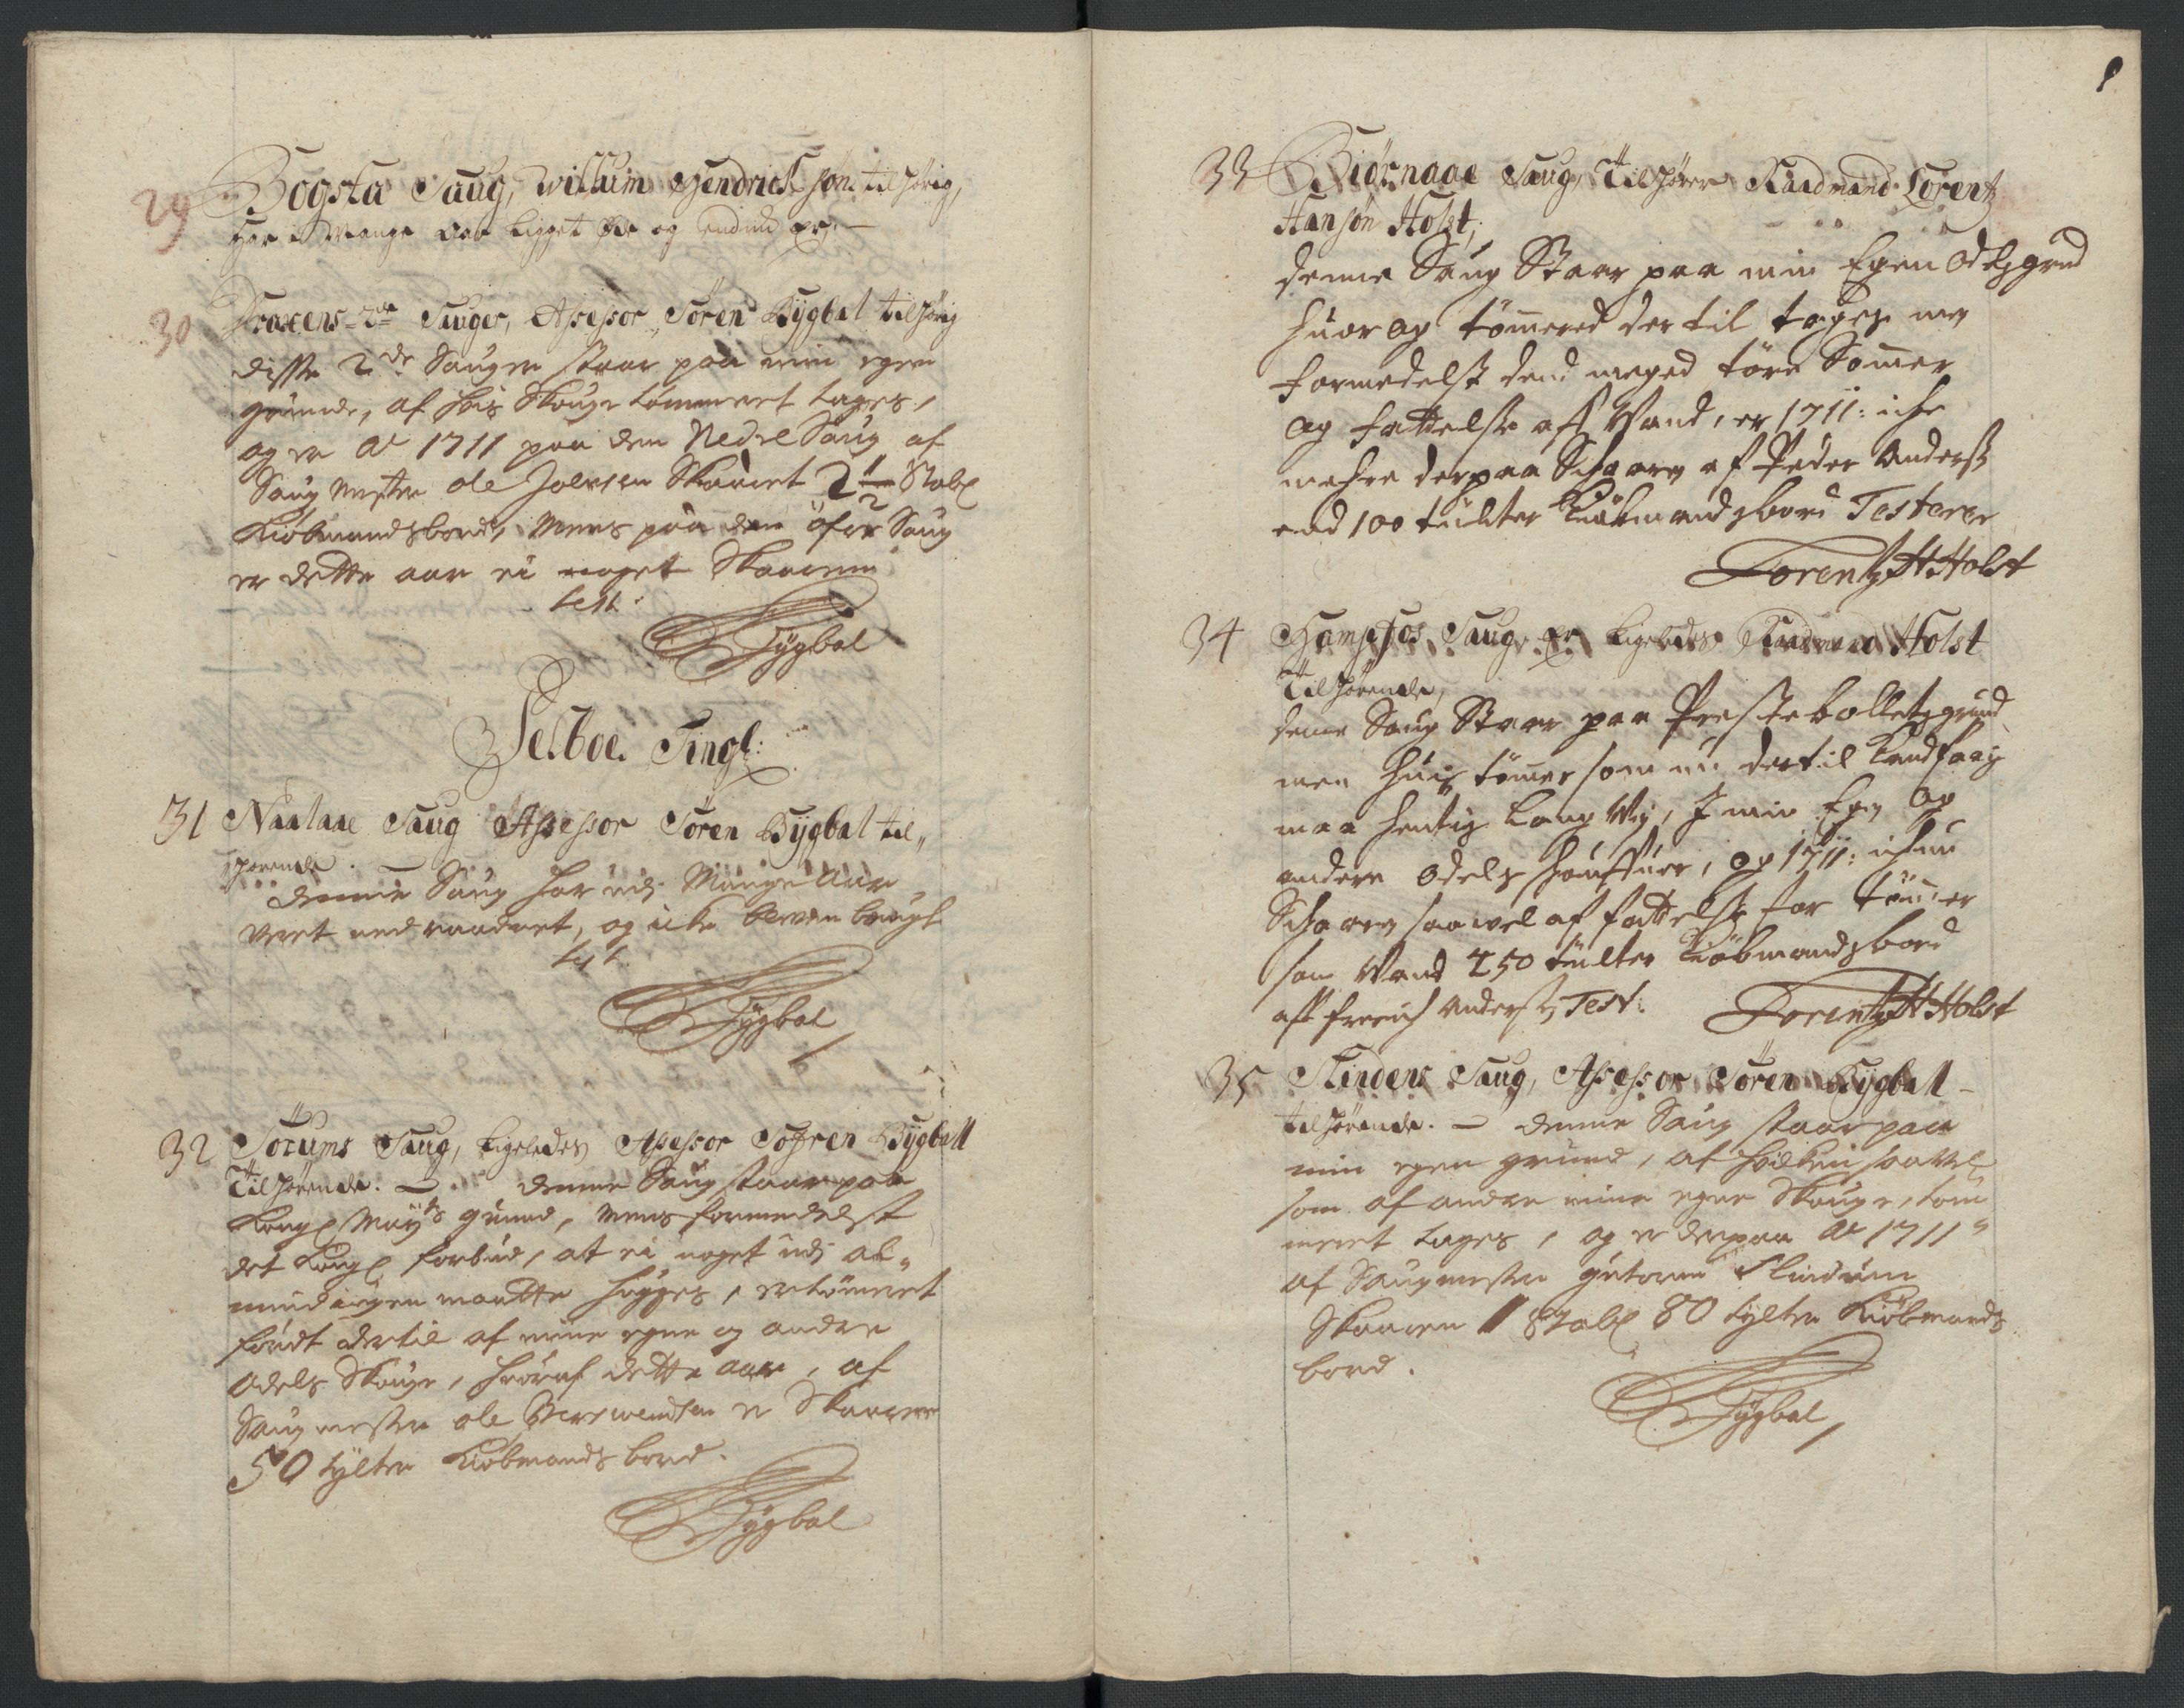 29 Bogsta Saug, Willum Hendrichsøn tilhørig,
Har i Mange Aar ligget Øde og endnu er. —
30 Draxens 2de Sauger, Assessor Søren Bygbal tilhørig
disse 2de Sauger staar paa min egen
grund, af hvis Skouge tømmeret tages,
og er Ao 1711 paa den Nedre Saug af
Saug Mester Ole Joensen Skaaret 2 1/2 Stabl
Kiøbmandsbord, Mens paa den øfre Saug
er dette aar ei noget Skaaren
test.
SBygbal
Selboe Tingl:
31 Naalaae Saug Assessor Søren Bygbal til„
hørende. — denne Saug har udj Mange Aar
veret nedraadnet, og icke bleven brugt
test.
SBygbal
32 Sørums Saug, ligeledes Assessor Søfren Bygball
Tilhørende. — denne Saug staar paa
Kongl May:ts grund, Mens formedelst
det Kongl forbud, at ei noget udj al„
mindingen maatte hugges, er tømeret
kiøbt dertil af mine egne og andre
Odels Skouge, hvoraf dette aar, af
Saug mester Ole er Skaaren
50 tylter Kiøbmands bord.
SBygbal
33 Biørnaae Saug, Tilhører Raadmand Lorentz
Hansøn Holst,
denne Saug Staar paa min Egen Odelsgrund
huor og tømered der til tages men
formedelst dend meged tøre Somer
og fattelse aff Vand, er 1711: iche
mehre derpaa Schaaren af Peder Anderss
end 100 tulter Kiøbmandsbord Testerer
Lorentz H Holst
34 Hampfos Saug er ligeledes Raadmand Holst
Tilhørende,
denne Saug Staar paa Prestebolletz grund
men huis tømer som nu dertil kand faaiss
maa hentis lang Vej, I min Egen og
andere Odels , og 1711: ichun
Schaaren saavel af fattelse for tømer
som Vand 250 tulter Kiøbmandsbord
aff Anderss Test:
Lorentz H Holst
35 Slindens Saug, Assessor Søren Bygball
tilhørende. — denne Saug staar paa
min egen grund, af hvilken saavel
som af andre mine egne Skouge, tøm
meret tages, og er derpaa Ao 1711
af Saugmester Guttorm Slindum
Skaaren 1 Stabl 80 tylter Kiøbmands
bord.
SBygbal